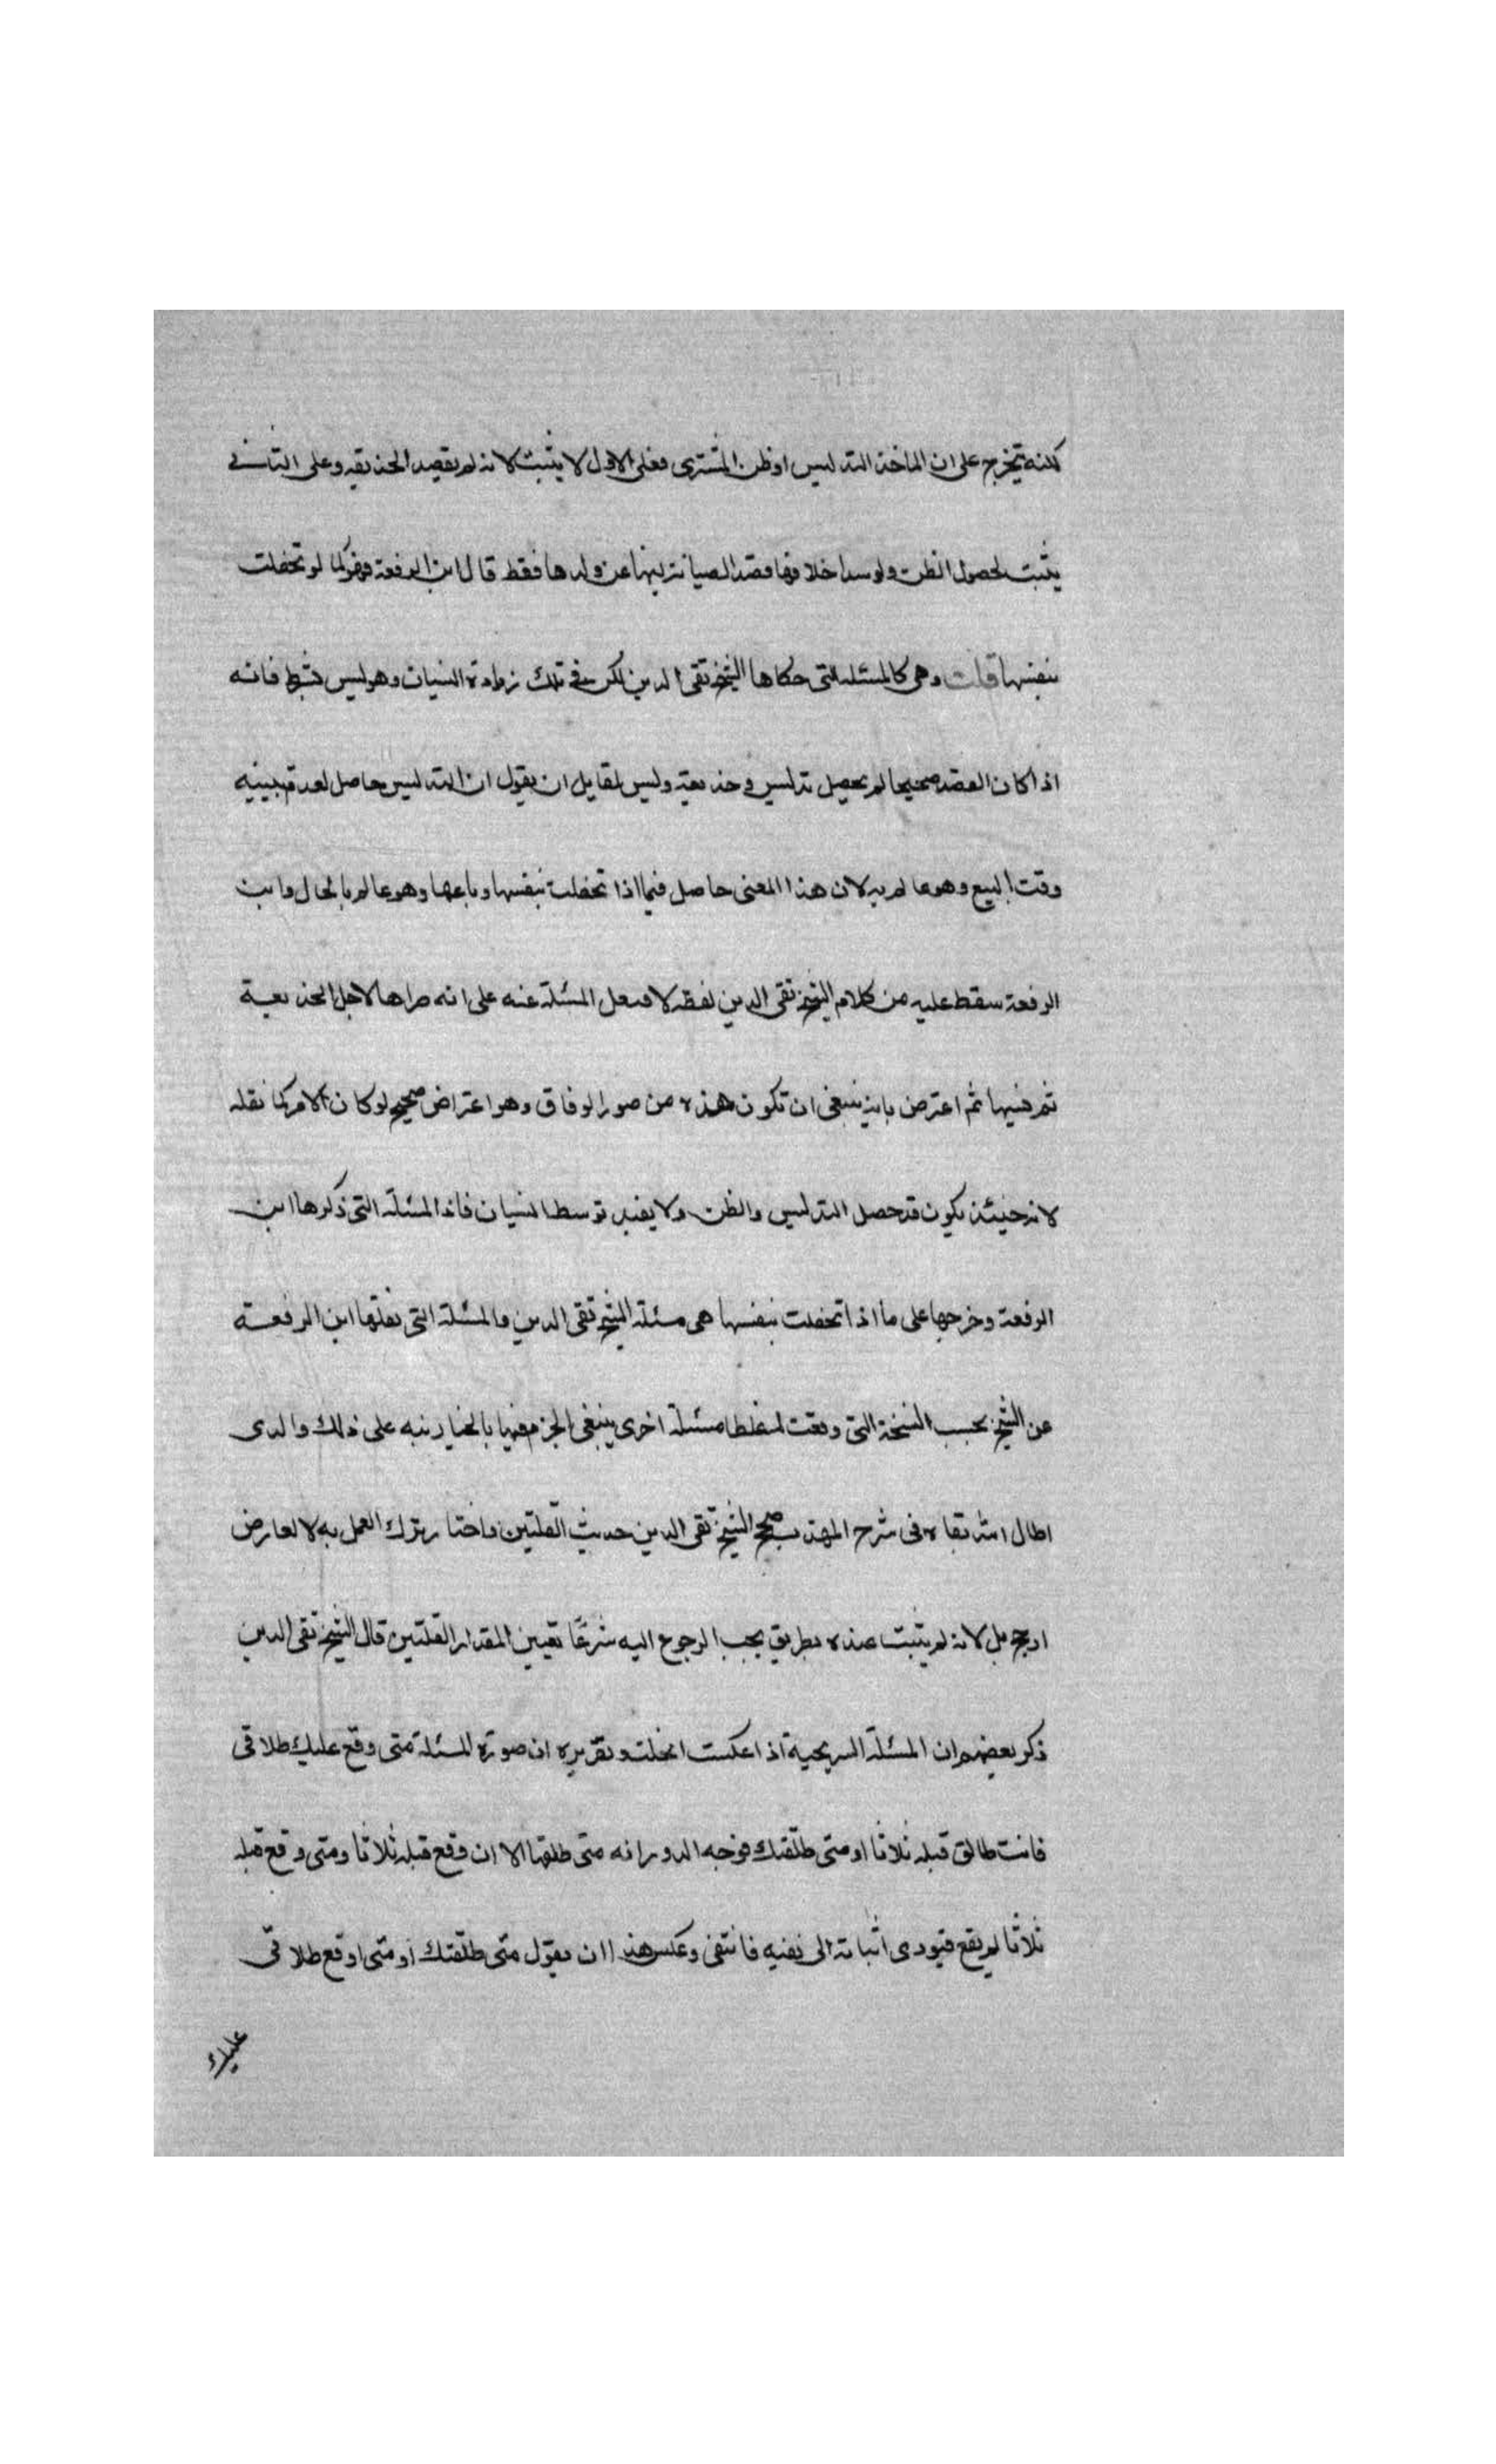 لكنه يتخرج على ان الماخذ التدليس او ظن المشترى فعلى الاول لا يثبت لانه لم يقصد الخديقه وعلى الثانى
يثبت لحصول الظن ولو سدا خلافها فقد الصيانة لبنها عن ولدها فقط قال ابن الرفعة فهو كما لو تحفلت
بنفسها قلت وهى كالمسئلة التى حكاها الشيخ تقى الدين لكن فى تلك زيادة النسيان وهو ليس شرط فانه
اذا كان القصد صحيحا لم يحصل تدليس وخديعة وليس لقايل ان يقول ان التدليس حاصل لعدم تبيينه
وقت البيع وهو عالم به لان هذا المعنى حاصل فيما اذا تحفلت بنفسها وباعها وهو عالم بالحال وابن
الرفعة سقط عليه من كلام الشيخ تقى الدين لفظه لا فنقل المسئلة عنه على انه صراها لاجل الخديعة
ثم نسيها ثم اعترض بانه ينبغى ان تكون هذه من صور الوفاق وهو اعتراض صحيح لو كان الامر كما نقله
لانه حينئذ يكون قد حصل التدليس والظن ولا يفيد توسط النسيان فاذا المسئلة التى ذكرها ابن
الرفعة وخرجها على ما اذا تحفلت بنفسها هى مسئلة الشيخ تقى الدين والمسئلة التى نقلها ابن الرفعة
عن الشيخ بحسب النسخة التى وقعت له غلطا مسئلة اخرى ينبغى الجزم فيها بالخيار نبه على ذلك والدى
اطال الله بقاه فى شرح المهذب صحح الشيخ تقى الدين حديث القلتين واختار ترك العمل به لا لعارض
ارجح بل لانه لم يثبت عنده بطريق يجب الرجوع اليه شرعًا تعيين المقدار القلتين قال الشيخ تقى الدين
ذكر بعضهم ان المسئلة السريجية اذا عكست انحلت وتقريره ان صورة المسئلة متى وقع عليك طلاقى
فانت طالق قبله ثلاثا او متى طلّقتك فوجه الدور انه متى طلقها الان وقع قبله ثلاثا ومتى وقع قبله
ثلاثا لم يقع فيودى اثباته الى نفيه فانتفى وعكس هذا ان يقول متى طلّقتك او متى اوقع طلاقى
عليك